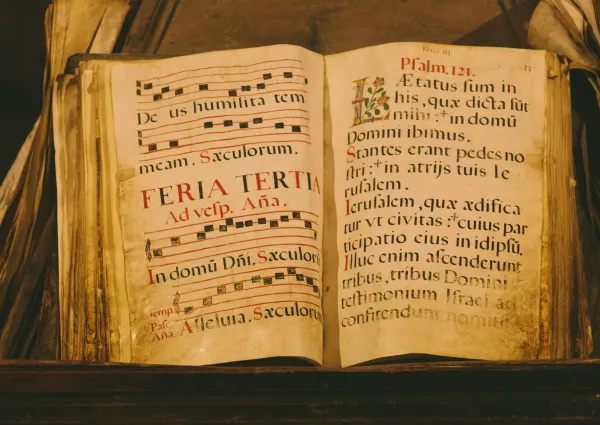 De us humilita tem
meam. Sæculorum.
FERIA TERTIA
Ad vesp. Aña.
In domū Dñi. Sæculorū
temp.
Pasc.
Aña. Alleluia. Sæculorum
Psalm. 121.
LÆtatus sum in
his, quæ dicta sūt
mihi :+in domū
Domini ibimus.
Stantes erant pedes no
stri :+ in atrijs tuis Ie
rusalem.
Ierusalem, quæ ædifica
tur vt civitas :+cuius par
ticipatio eius in idipsū.
Illuc enim ascenderunt
tribus, tribus Domini +
testimonium Israel ad
confitendum nomini